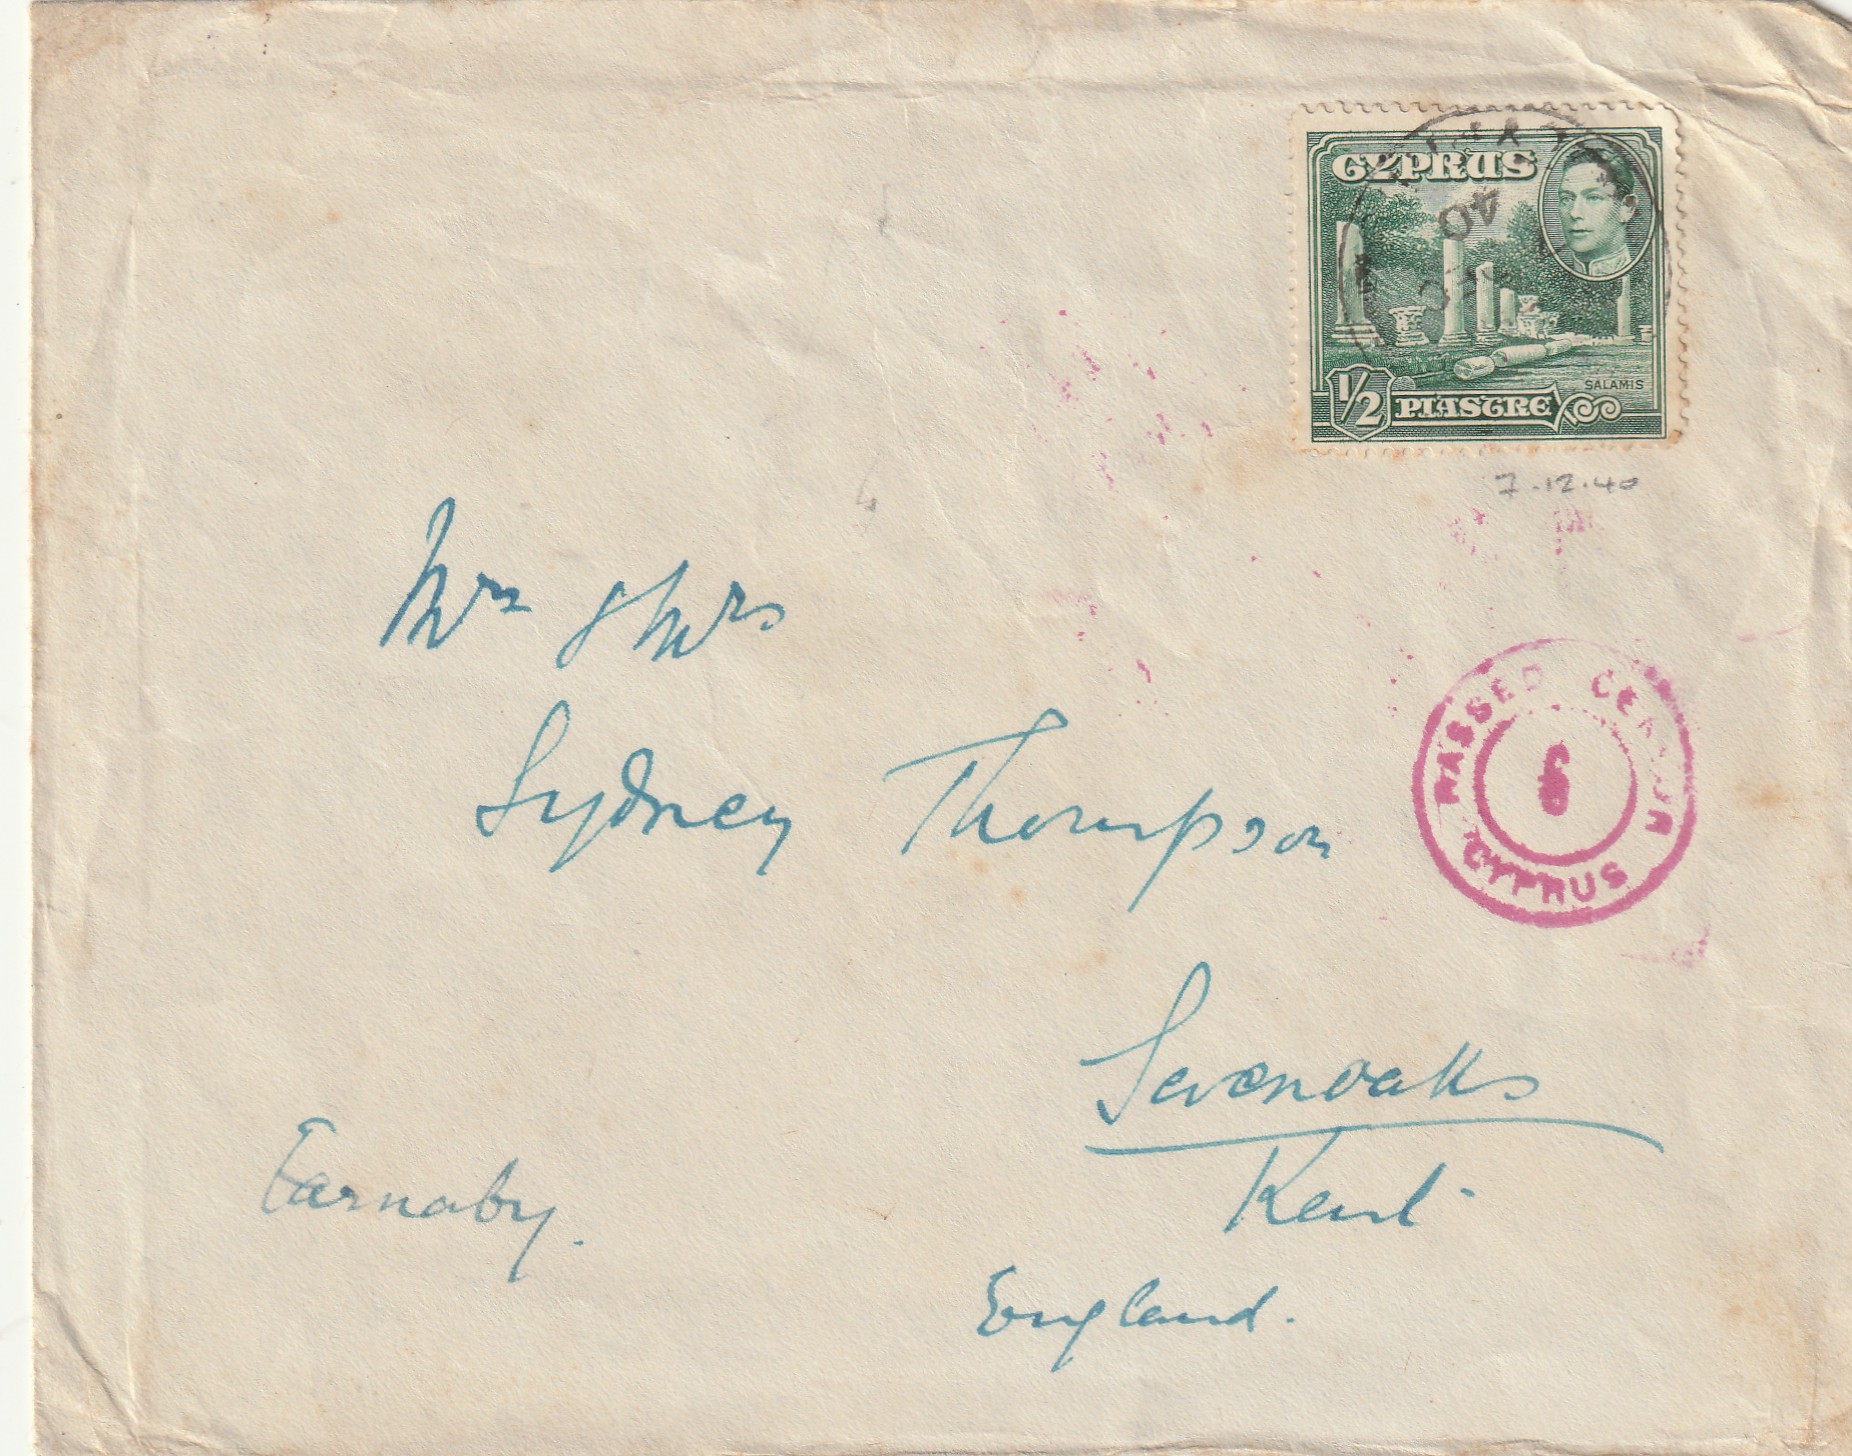 CYPRUS
40
SALAMIS
1/2 PIASTRE
7.12.40
Mr & Mrs
Sydney Thompson
PASSED CENSOR
CYPRUS
Sevenoaks
Kent
Farnaby.
England.